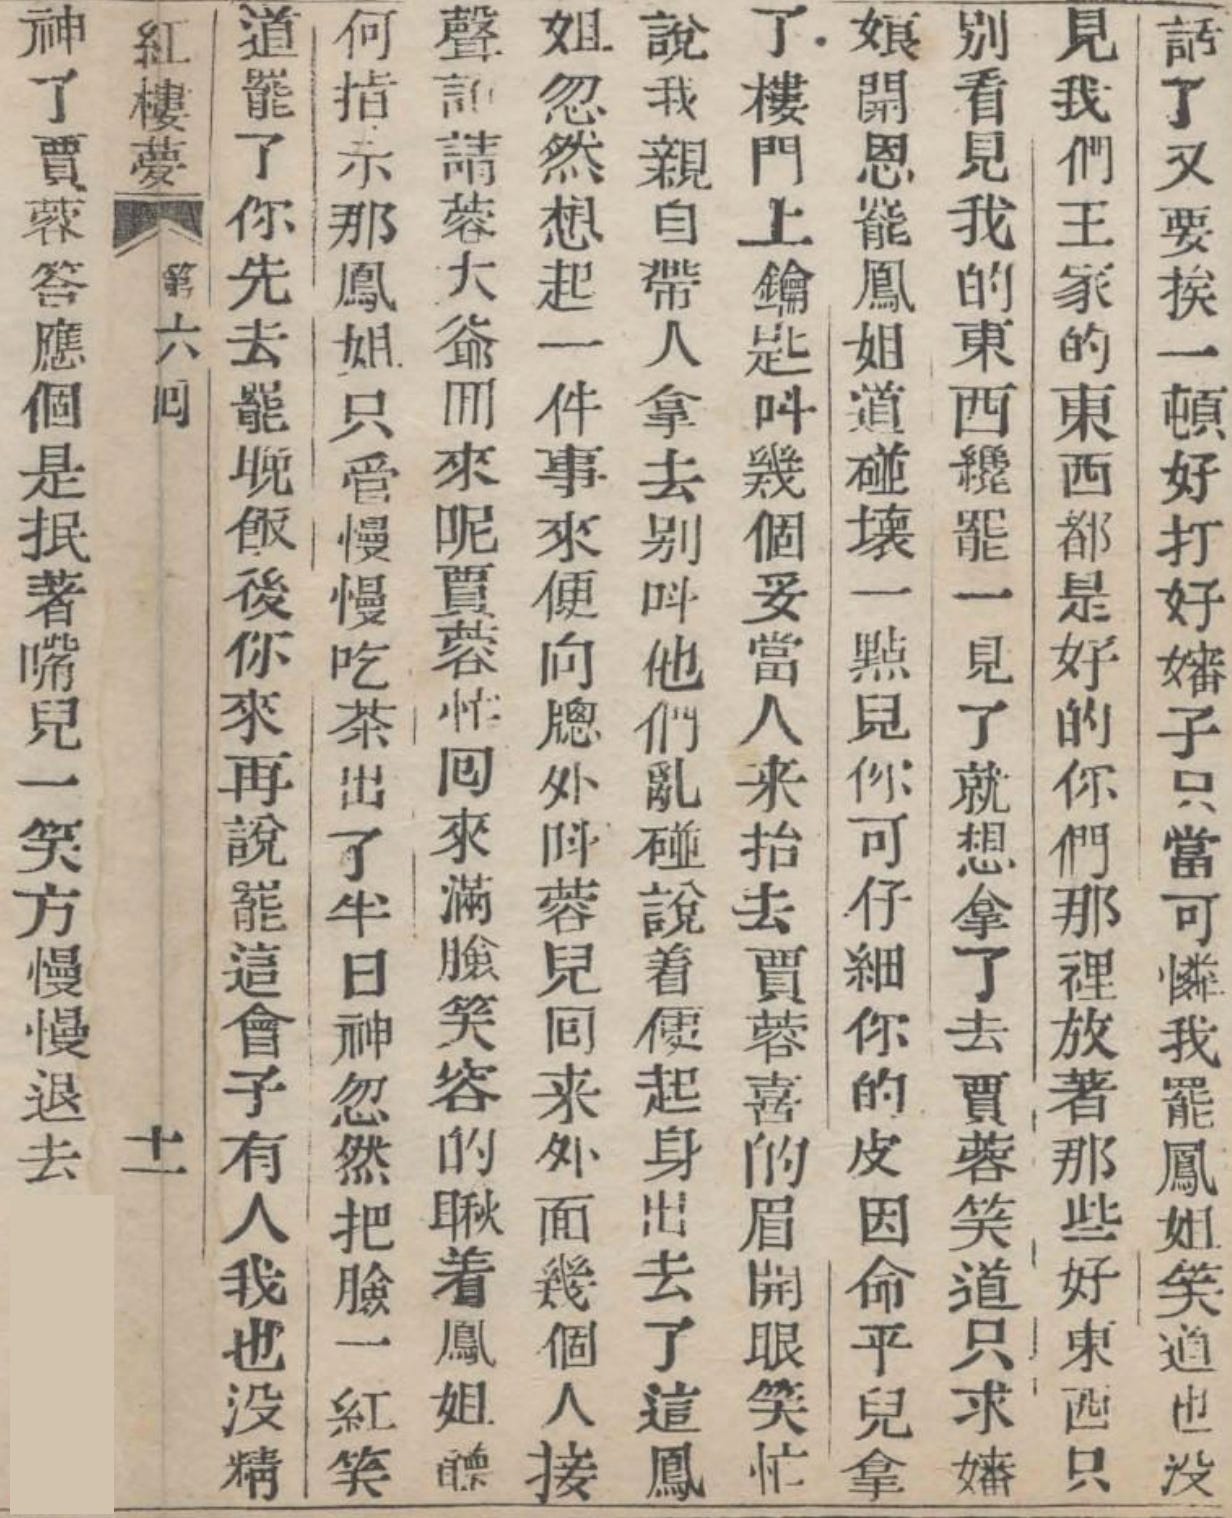 話了又要挨一頓好打好嬸子只當可憐我罷鳳姐笑道也没
見我們王家的東西都是好的你們那裡放著那些好東西只
别看見我的東西纔罷一見了就想拿了去賈蓉笑道只求嬸
娘開恩罷鳳姐道碰壊一㸃兒你可仔細你的皮因命平兒拿
了樓門上鑰匙叫幾個妥當人来抬去賈蓉喜的眉開眼笑忙
說我親自帶人拿去别呌他們亂碰說着便起身出去了這鳳
姐忽然想起一件事來便向牕外呌蓉兒回来外面幾個人接
聲説請蓉大爺回來呢賈蓉忙回來滿臉笑容的瞅着鳳姐聽
何指示那鳳姐只管慢慢吃茶出了半日神忽然把臉一紅笑
道罷了你先去罷晚飯後你來再說罷這會子有人我也没精
紅樓夢 第六回 十一
神了賈蓉答應個是抿著嘴兒一笑方慢慢退去